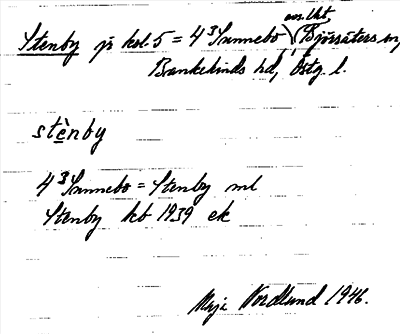 ens. lht,
Stenby jr kol. 5 = 4³ Sunnebo Björsäters sn,
Bankekinds hd, Östg. l.
stènby
4³ Sunnebo = Stenby ml
Stenby kb 1939 ek
Maja Nordlund 1946.